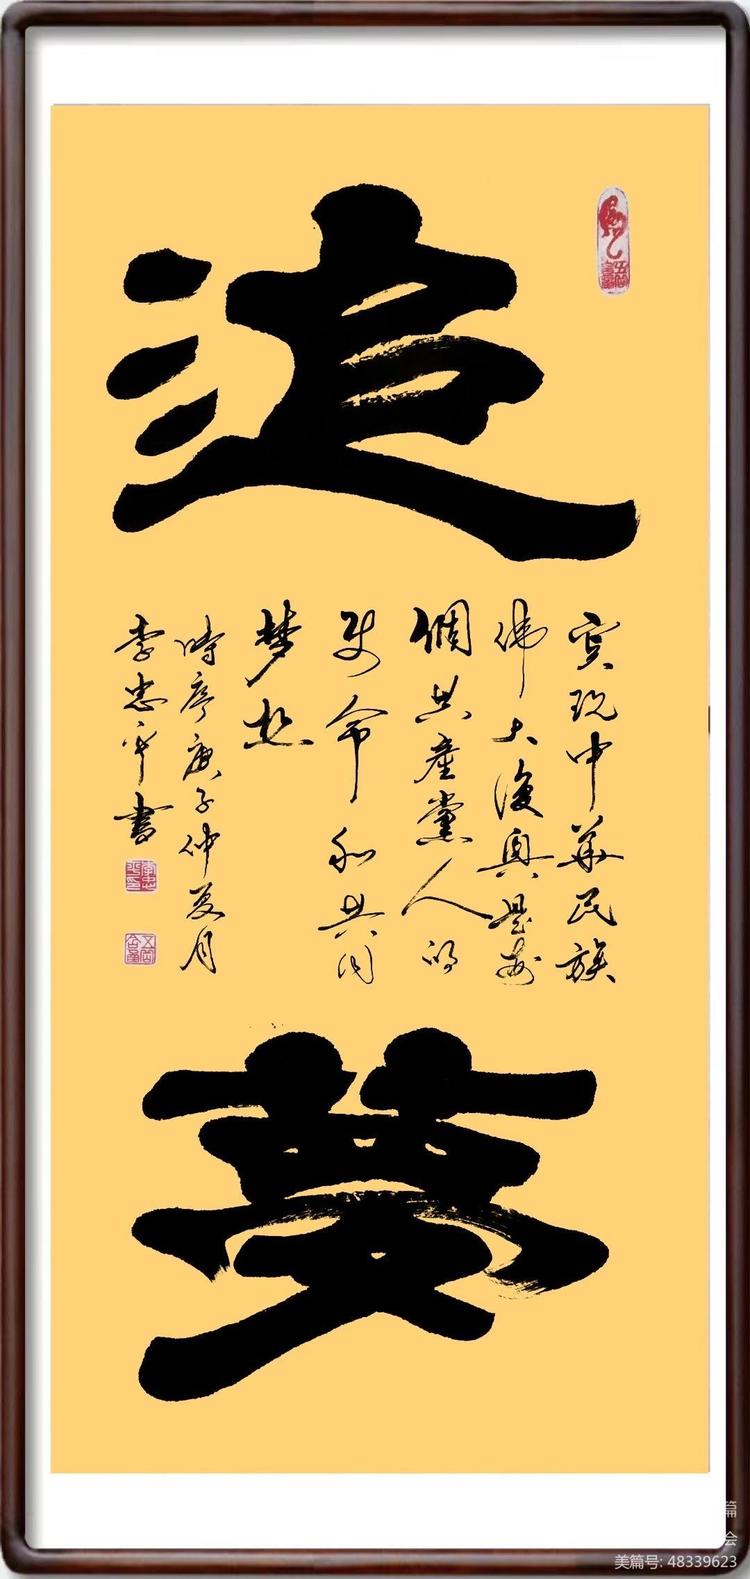 追
實現中華民族
偉大復興是每
個共產黨人的
使命和共同
梦想
時序庚子仲夏月
李忠平書
夢
篇
会
美篇号: 48339623